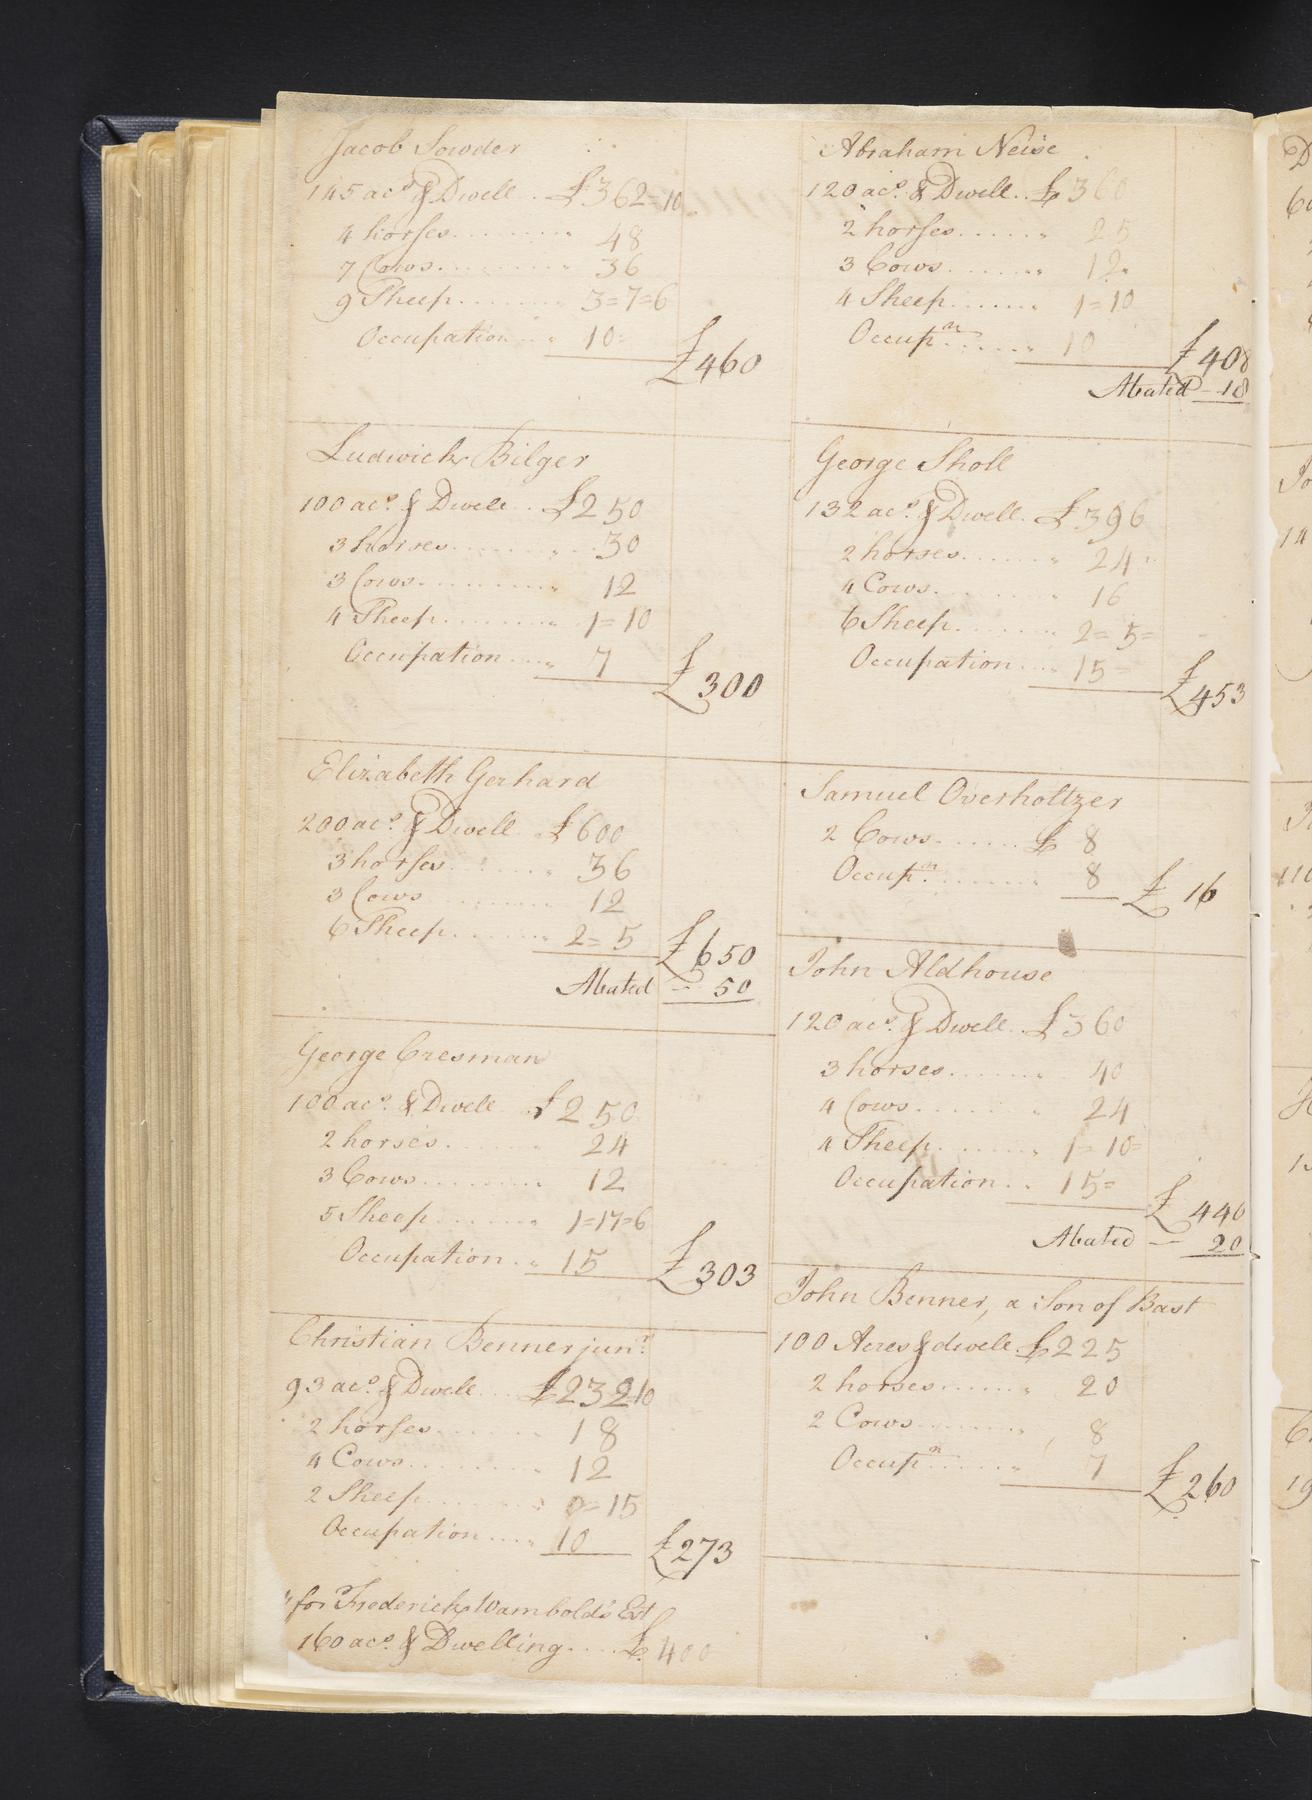 Jacob Sowder
145 acs. & Dwell .. £362=10
4 horses ........ " 48
7 Cows ........ " 36
9 Sheep ........ " 3=7=6
Occupation .. " 10=
£460
Ludwick Bilger
100 acs. & Dwell .. £250
3 horses ........ " 30
3 Cows ........ " 12
4 Sheep ........ " 1=10
Occupation .... " 7
£300
Elizabeth Gerhard
200 acs. & Dwell £600
3 horses ........ " 36
3 Cows ........ " 12
6 Sheep ........ " 2=5
£650
Abated — 50
George Cresman
100 acs. & Dwell £250
2 horses ........ 24
3 Cows ........ " 12
5 Sheep ........ " 1=17=6
Occupation .. " 15
£303
Christian Benner junr.
93 acs. & Dwell .... £232=10
2 horses ........ 18
4 Cows ........ " 12
2 Sheep ........ " 0=15
Occupation .... " 10
£273
" for Frederick Wambold's Est
160 acs. & Dwelling .... £400
Abraham Neise
120 acs. & Dwell .. £360
2 horses ...... " 25
3 Cows ...... " 12
4 Sheep ...... " 1=10
Occupn ...... " 10
£408
Abated — 18
George Sholl
132 acs. & Dwell .. £396
2 horses ...... " 24
4 Cows ...... " 16
6 Sheep ...... " 2=5=
Occupation .... " 15=
£453
Samuel Overholtzer
2 Cows ...... £ 8
Occupn ...... " 8
£16
John Aldhouse
120 acs. & Dwell .. £360
3 horses ...... " 40
4 Cows ...... " 24
4 Sheep ...... " 1=10=
Occupation .. 15=
£440
Abated — 20
John Benner, a Son of Bast
100 Acres & dwell. £225
2 horses ...... " 20
2 Cows ...... " 8
Occupn ...... " 7
£260